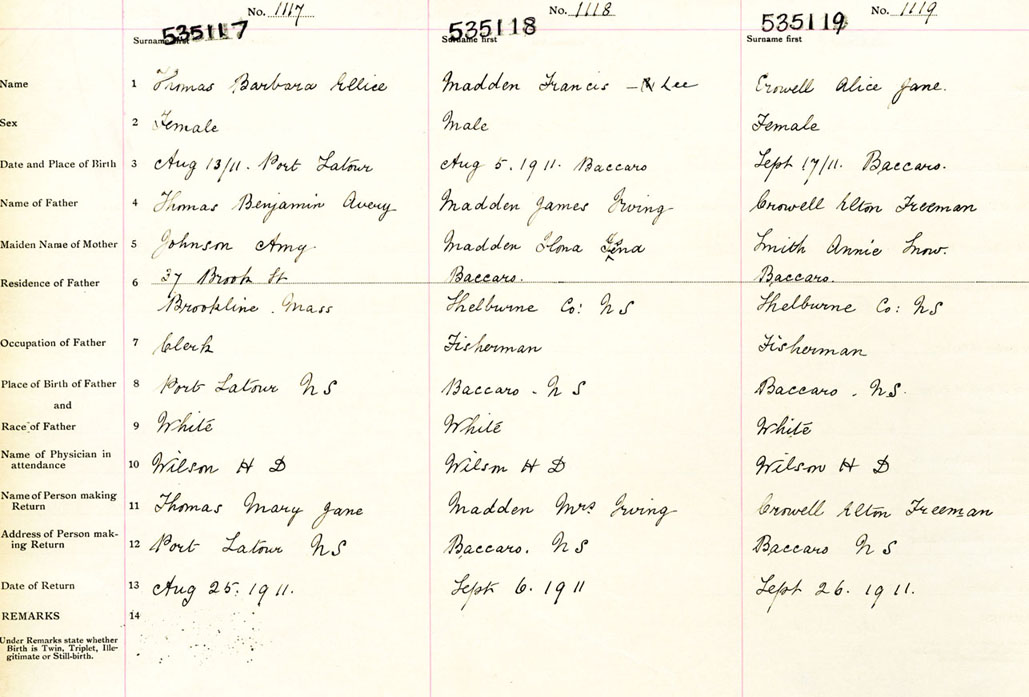 No. 1117 No. 1118 No. 1119
535117 535118 535119
Surname first Surname first Surname first
Name 1 Thomas Barbara Ellice Madden Francis – Lee Crowell Alice Jane.
Sex 2 Female Male Female
Date and Place of Birth 3 Aug 13/11. Port Latour Aug 5. 1911. Baccaro Sept 17/11. Baccaro.
Name of Father 4 Thomas Benjamin Avery Madden James Irving Crowell Elton Freeman
Maiden Name of Mother 5 Johnson Amy. Madden Ilona Crowell Smith Annie Snow.
Residence of Father 6 37 Brook St Baccaro. Baccaro.
Brookline. Mass Shelburne Co: NS Shelburne Co: NS
Occupation of Father 7 Clerk Fisherman Fisherman
Place of Birth of Father 8 Port Latour NS Baccaro - NS Baccaro. NS.
and
Race of Father 9 White White White
Name of Physician in
attendance 10 Wilson H D Wilson H D Wilson H D
Name of Person making
Return 11 Thomas Mary Jane Madden Mrs Irving Crowell Elton Freeman
Address of Person mak-
ing Return 12 Port Latour NS Baccaro. NS Baccaro NS
Date of Return 13 Aug 25. 1911. Sept 6. 1911 Sept 26. 1911.
REMARKS 14
Under Remarks state whether
Birth is Twin, Triplet, Ille-
gitimate or Still-birth.